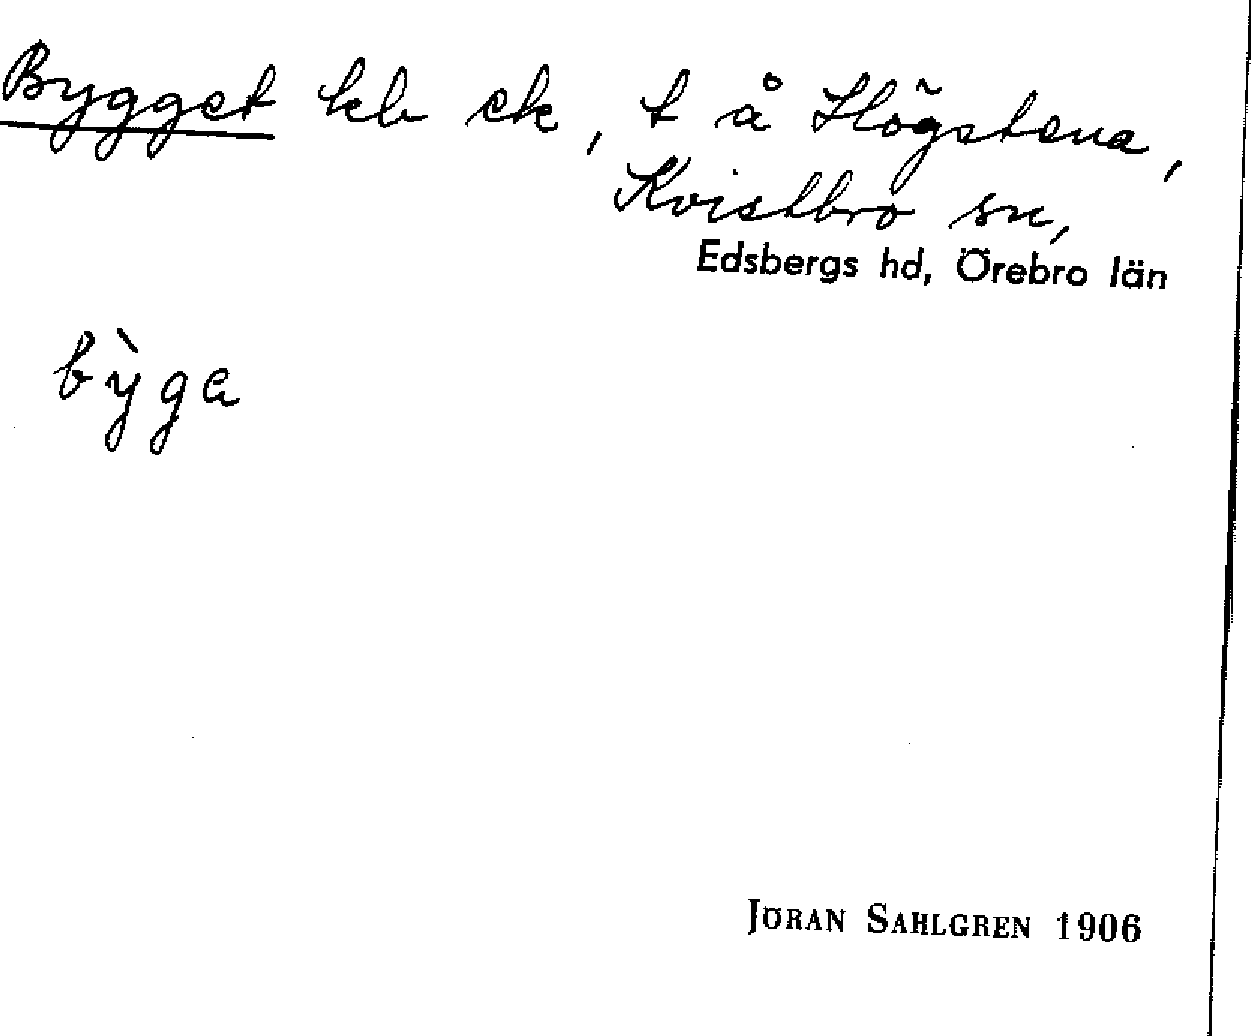 Bygget kb ek, t å Högstena,
Kvistbro sn,
Edsbergs hd, Örebro län
bỳga
JÖRAN SAHLGREN 1906